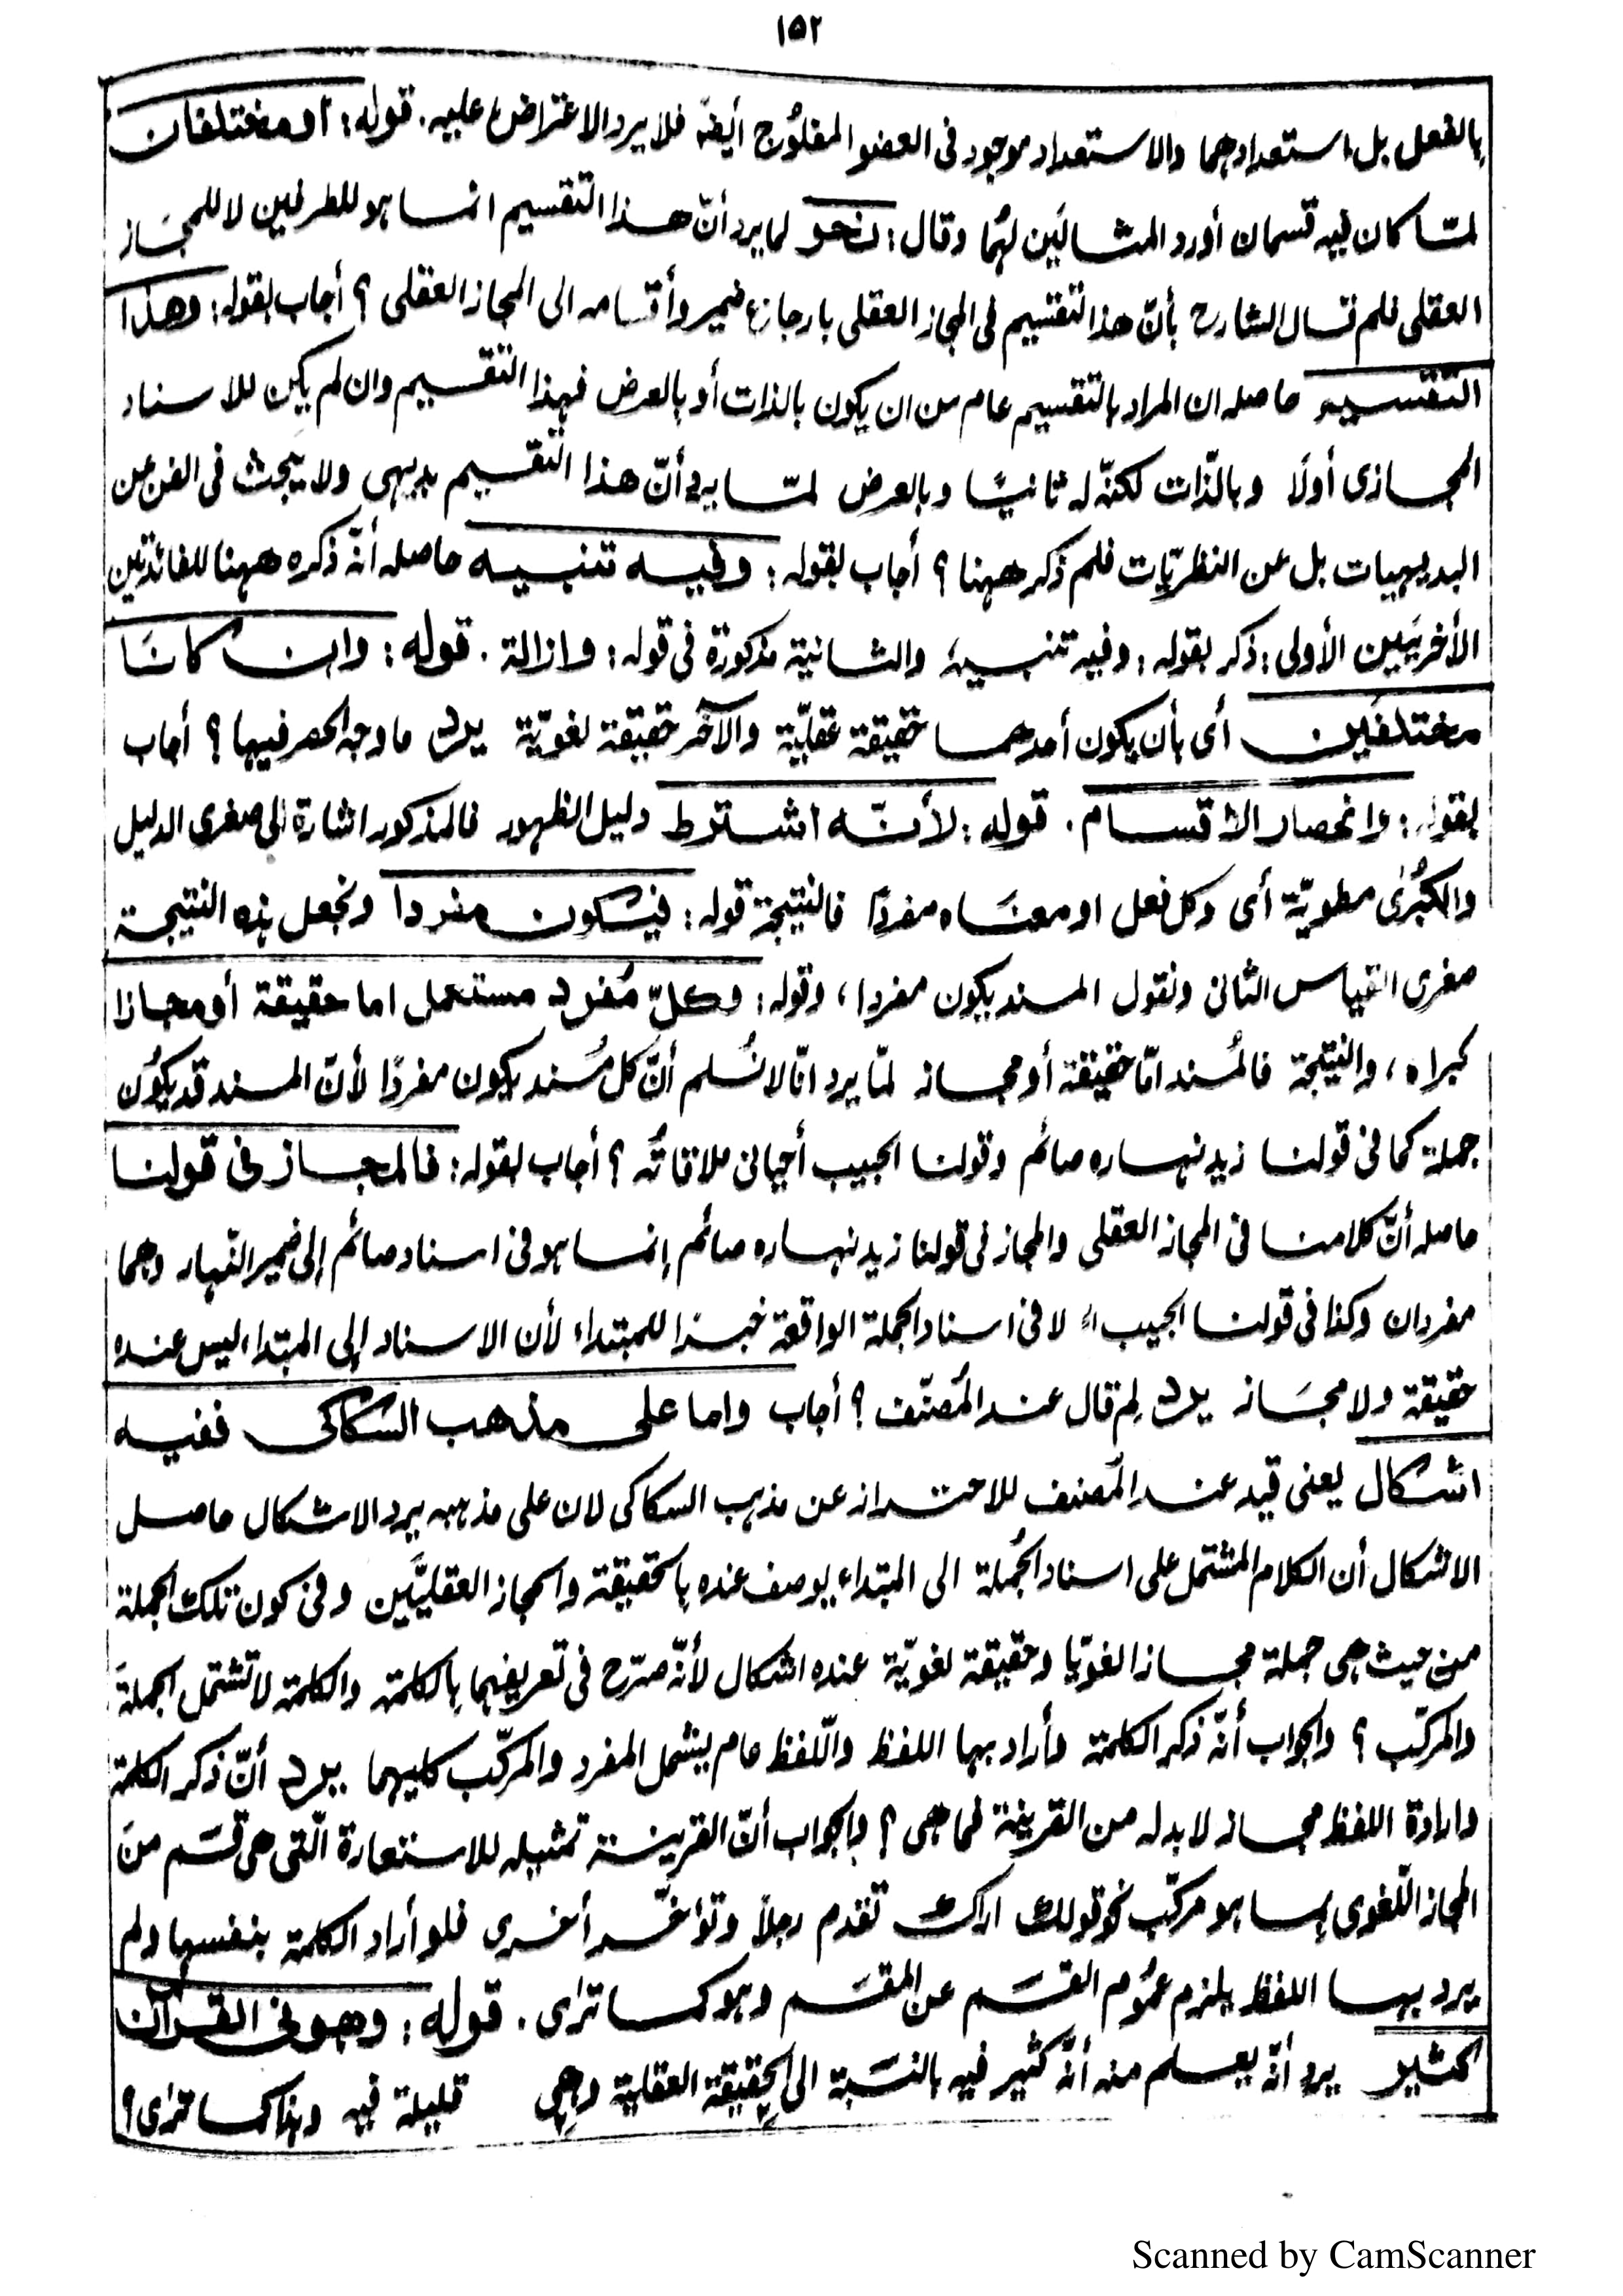 ١٥٢
بالفعل بل استعدادهما والاستعداد موجود فى العضو المفلُوج أيضًا فلا يرد الاعتراض عليه. قوله: أو مختلفان
لمّا كان فيه قسمان أورد المثالَين لهُما وقال: نحو لما يرد أنّ هذا التقسيم انما هو للطرفين لا للمجَاز
العقلى فلم قال الشارح بأنّ هذا التقسيم فى المجاز العقلى بارجاع ضمير وأقسامه الى المجاز العقلى ؟ أجاب بقوله: وهذا
التقسيم حاصله ان المراد بالتقسيم عام من ان يكون بالذات أو بالعرض فهذا التقسيم وان لم يكن للاسناد
المجازى أولًا وبالذّات لكنّه له ثانيًا وبالعرض لمّا يرد أنّ هذا التقسيم بديهى ولا يبحث فى الفن عن
البديهيات بل عن النظريّات فلم ذكر ههنا ؟ أجاب بقوله: وفيه تنبيه حاصله أنّه ذكره ههنا للفائدتين
الأخريَين الأولى: ذكر بقوله: وفيه تنبيه، والثانية مذكورة فى قوله: وازالة. قوله: وان كانَا
مختلفَين أى بأن يكون أحدهما حقيقة عقليّة والآخر حقيقة لغويّة يرد ما وجه الحصر فيها ؟ أجاب
بقوله: وانحصار الاقسام. قوله: لأنّه اشترط دليل الظهور فالمذكور اشارة إلى صغرى الدليل
والكبُرىٰ مطويّة أى وكل فعل او معنَاه مفردًا فالنتيجة قوله: فيكون مفردا ونجعل هذه النتيجة
صغرى القياس الثانى ونقول المسند يكون مفردا، وقوله: وكلّ مُفرد مستعمل اما حقيقة أو مجازا
كبراه، والنتيجة فالمُسند امّا حقيقة أو مجاز لمّا يرد انّا لا نُسلم أنّ كل مُسند يكون مفردًا لأنّ المسند قد يكوُن
جملة كما فى قولنا زيد نهاره صائم وقولنا الحبيب أحيانى ملاقاتُه ؟ أجاب بقوله: فالمجاز فى قولنا
حاصله أنّ كلامنا فى المجاز العقلى والمجاز فى قولنا زيد نهاره صائم إنما هو فى اسناد صائم إلى ضمير النّهار وهما
مفردان وكذا فى قولنا الحبيب الخ لا فى اسناد الجملة الواقعة خبرًا للمبتداء لأن الاسناد إلى المبتداء ليس عنده
حقيقة ولا مجَاز يرد لِم قال عند المُصنّف ؟ أجاب واما على مذهب السّكاكى ففيه
اشكال يعنى قيد عند المُصنف للاحتراز عن مذهب السكاكى لان على مذهبه يرد الاشكال حاصل
الاشكال أن الكلام المشتمل على اسناد الجُملة الى المبتداء يوصف عنده بالحقيقة والمجاز العقليَّين وفى كون تلك الجملة
من حيث هى جملة مجازا لغويّا وحقيقة لغويّة عنده اشكال لأنّه صرّح فى تعريفهما بالكلمة والكلمة لا تشتمل الجملةَ
والمركّب ؟ والجواب أنّه ذكر الكلمة وأراد بها اللفظ واللّفظ عام يشمل المفرد والمركّب كليهما يرد أنّ ذكر الكلمة
وارادة اللفظ مجاز لا بد له من القرينة فما هى ؟ والجواب أنّ القرينة تمثيله للاستعارة الّتى هى قسَم منَ
المجاز اللّغوى بما هو مركّب نحو قولك اراك تقدم رجلًا وتؤخّر أخرى فلو أراد الكلمة بنفسها ولم
يرد بها اللفظ يلزم عمُوم القسَم عن المقسَم وهو كما ترٰى. قوله: وهو فى القرآن
كثير يرد أنّه يعلم منه أنّه كثير فيه بالنسَبة الى الحقيقة العقلية وهى قليلة فيه وهذا كما ترٰى؟
Scanned by CamScanner